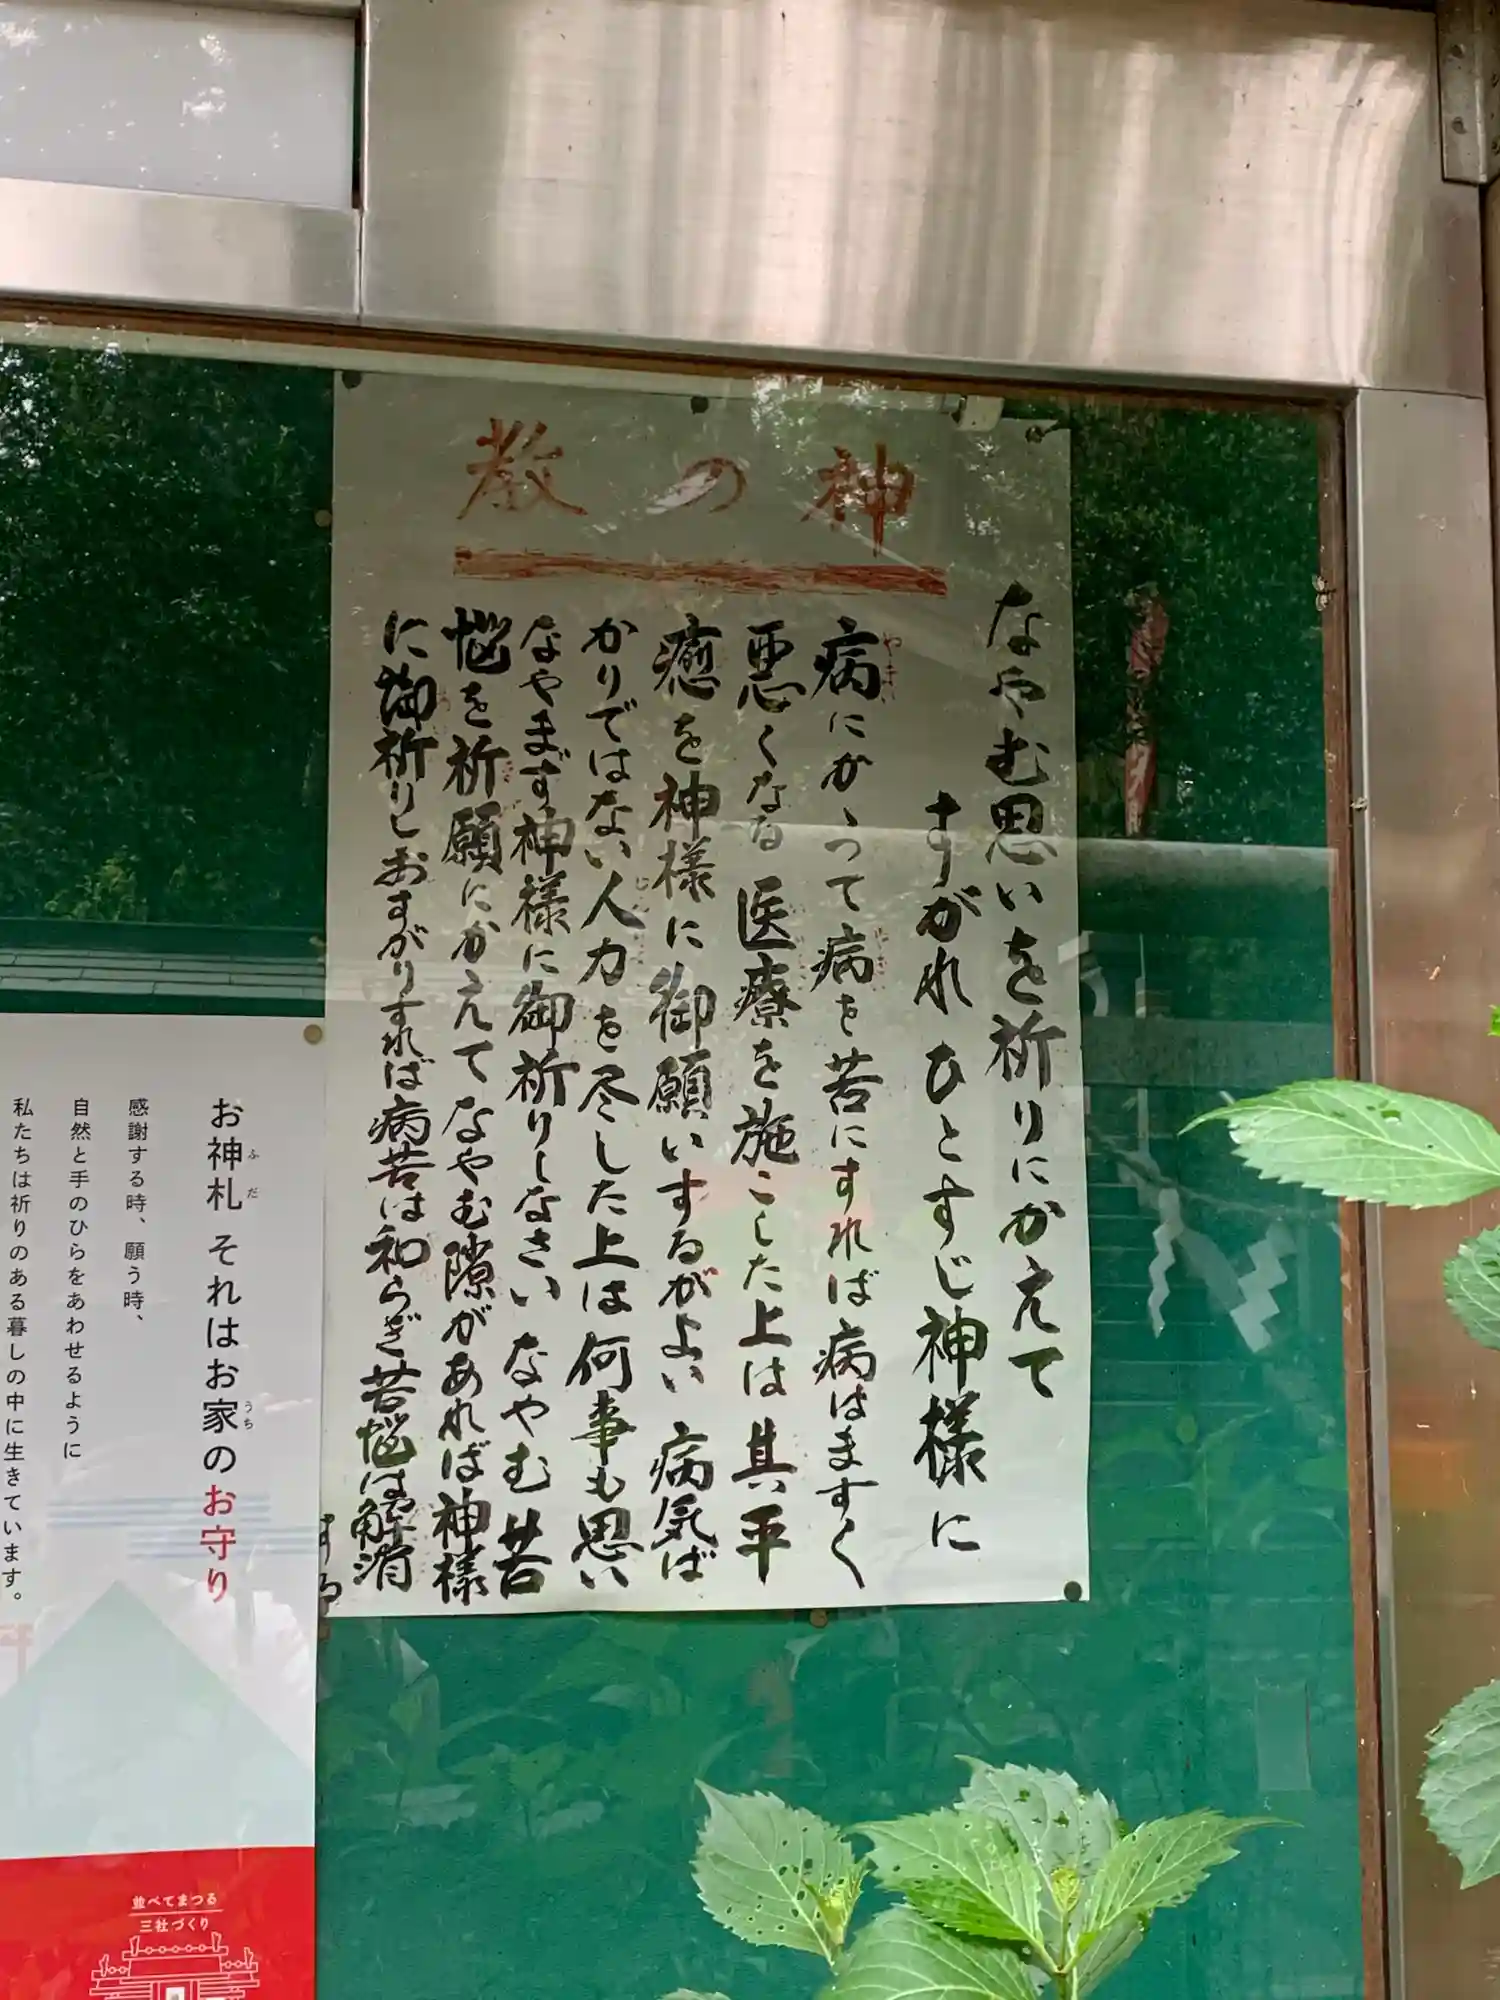 神の教
なやむ思いを祈りにかえて
すがれひとすじ神様に
病にかゝって病を苦にすれば病はますく
悪くなる 医療を施こした上は其平
癒を神様に御願いするがよい 病気ば
かりではない人力を尽した上は何事も思い
なやまず神様に御祈りしなさい なやむ苦
悩を祈願にかえてなやむ隙があれば神様
に御祈りしおすがりすれば病苦は和らぎ苦悩は解消
する
お神札 それはお家のお守り
ふだ
うち
感謝する時、願う時、
自然と手のひらをあわせるように
私たちは祈りのある暮しの中に生きています。
並べてまつる
三社づくり